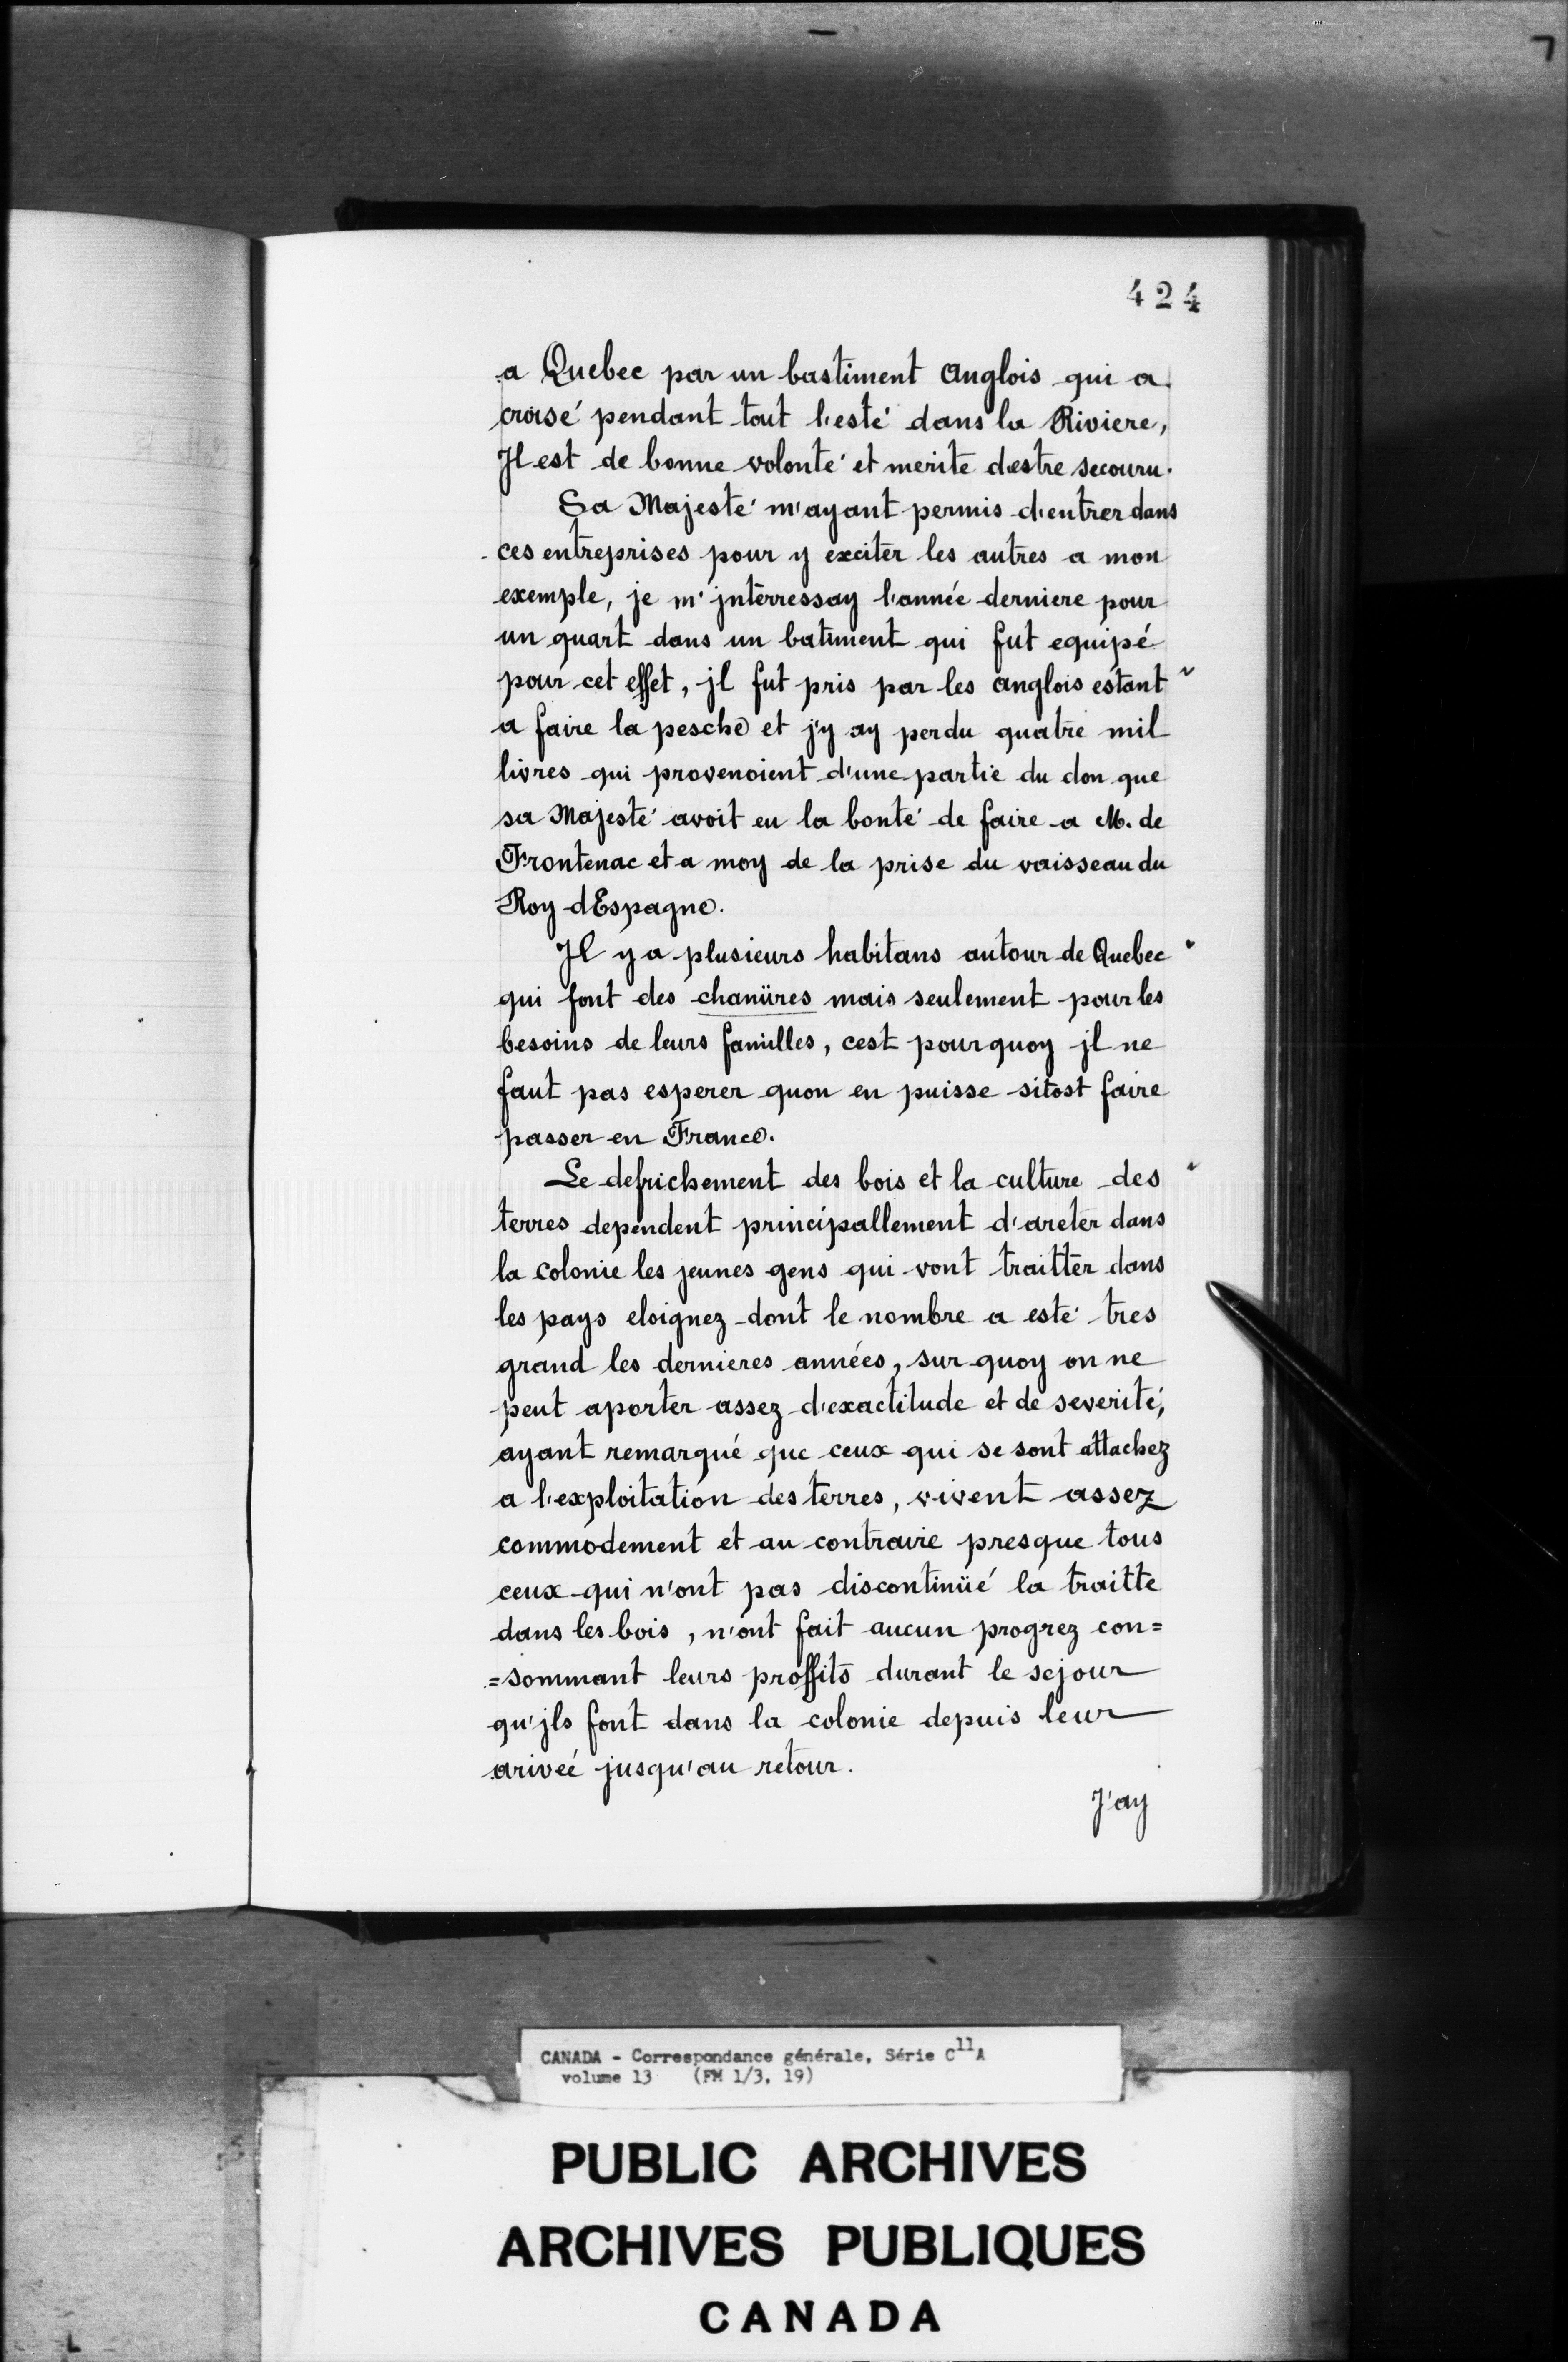 424
a Quebec par un bastiment anglois qui a
croisé pendant tout l'esté dans la Riviere,
Il est de bonne volonté et merite destre secouru.
Sa Majesté m'ayant permis d'entrer dans
ces entreprises pour y exciter les autres a mon
exemple, je m'jnterressay l'année derniere pour
un quart dans un batiment qui fut equipé
pour cet effet, jl fut pris par les anglois estant
a faire la pesche et j'y ay perdu quatre mil
livres qui provenoient d'une partie du don que
sa Majesté avoit eu la bonté de faire a M. de
Frontenac et a moy de la prise du vaisseau du
Roy dEspagne.
Il y a plusieurs habitans autour de Quebec
qui font des chanüres mais seulement pour les
besoins de leurs familles, cest pourquoy jl ne
faut pas esperer quon en puisse sitost faire
passer en France.
Le defrichement des bois et la culture des
terres dependent principallement d'areter dans
la colonie les jeunes gens qui vont traitter dans
les pays eloignez dont le nombre a esté tres
grand les dernieres années, sur quoy on ne
peut aporter assez d'exactitude et de severité,
ayant remarqué que ceux qui se sont attachez
a l'exploitation des terres, vivent assez
commodement et au contraire presque tous
ceux qui n'ont pas discontinüé la traitte
dans les bois, n'ont fait aucun progrez con=
=sommant leurs proffits durant le sejour
qu'jls font dans la colonie depuis leur
arivée jusqu'au retour.
J'ay
CANADA - Correspondance générale, Série C11A
volume 13 (FM 1/3, 19)
PUBLIC ARCHIVES
ARCHIVES PUBLIQUES
CANADA